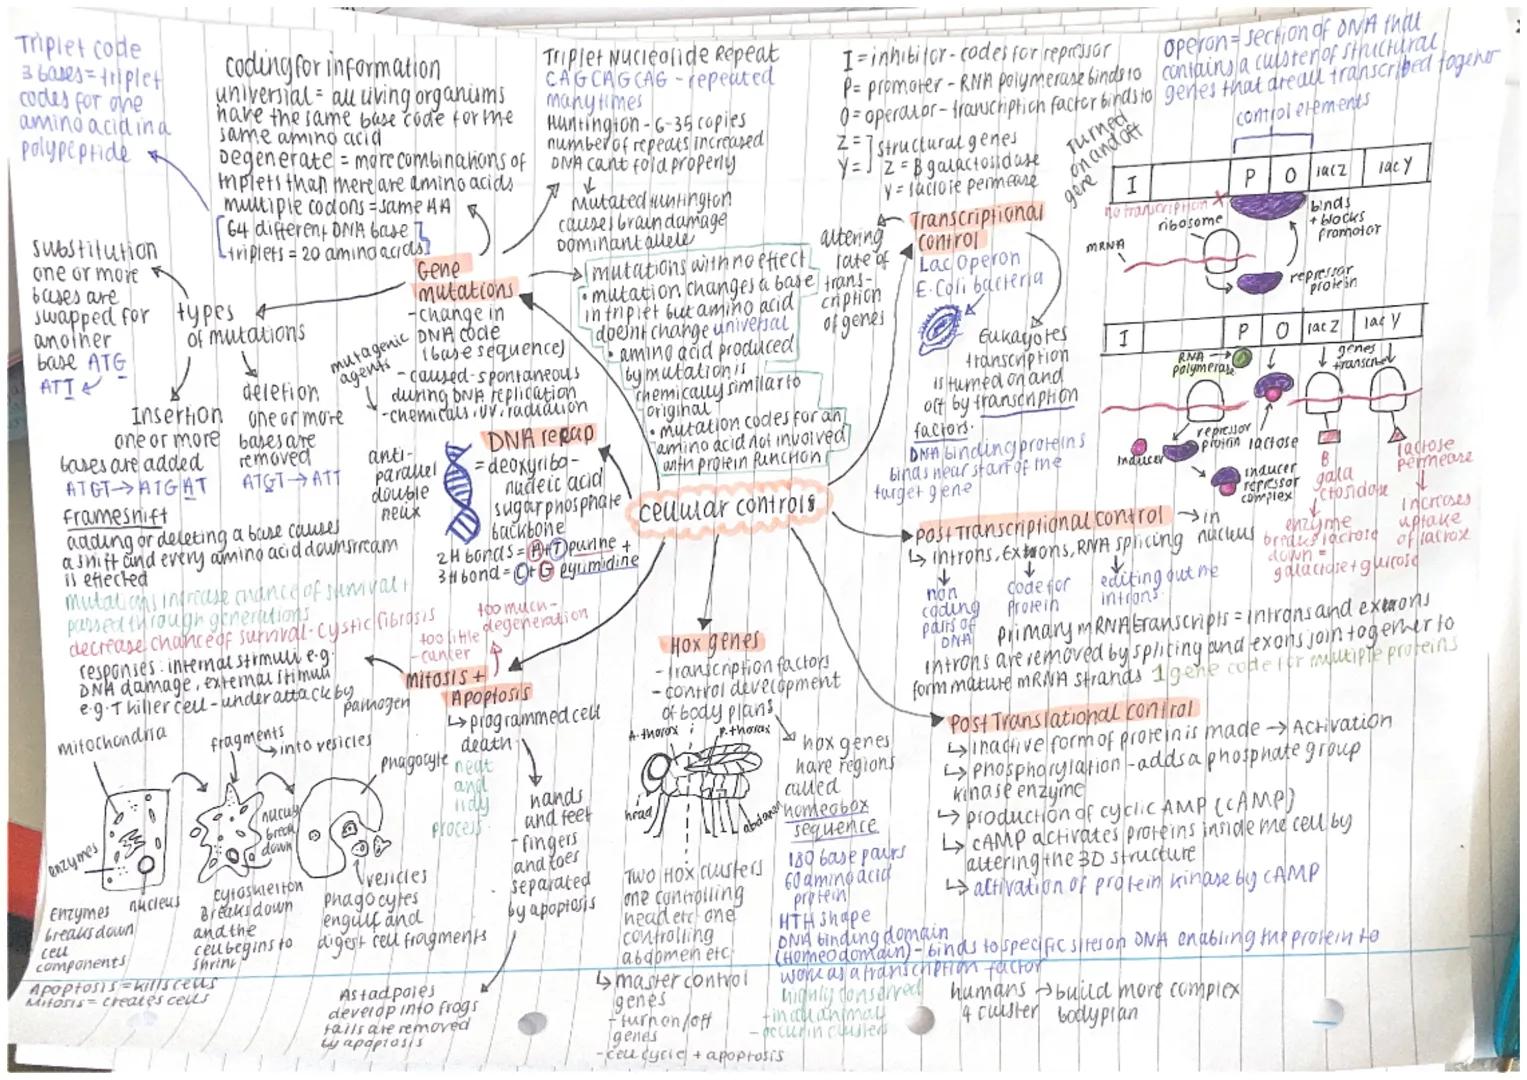 Triplet code
3 bases = triplet
codes for one
amino acid in a
polypeptide
coding for information
universial = all living organisms
have the same base code for the
same amino acid
Degenerate = more combinations of
triplets than there are amino acids
multiple codons = same AA
64 different DNA base
triplets = 20 amino acids
Triplet Nucleotide Repeat
CAGCAGCAG - repeated
many times
Huntington - 6-35 copies
number of repeats increased
DNA cant fold properly
Mutated huntington
causes brain damage
dominant allele
I = inhibitor - codes for repressor
P = promoter - RNA polymerase binds to
O = operator - transcription factor binds to
Z =
Y =
structural genes
Z = B galactosidase
Y = lactose permease
operon = section of DNA that
contains a culster of structural
genes that are all transcribed together
control elements
I
P
O
lac Z
lac Y
no transcription X
ribosome
mRNA
binds
+ blocks
promotor
repressor
protein
I
P
O
lac Z
lac Y
RNA
polymerase
genes
transcribed
inducer
repressor
protein
lactose
inducer
repressor
complex
B
gala
ctosidase
enzyme
breaks lactose
down =
galactose + glucose
lactose
permease
increases
uptake
of lactose
Turned
on and off
gene
Transcriptional
control
altering
rate of
trans-
cription
of genes
Lac Operon
E. Coli bacteria
Eukayotes
transcription
is turned on and
off by transcription
factors.
DNA binding proteins
binds near start of the
target gene
Gene
mutations
- change in
DNA code
(base sequence)
- caused - spontaneous
during DNA replication
- chemicals, UV, radiation
mutagenic
agents
mutations with no effect
• mutation changes a base
in triplet but amino acid
doesnt change universal
• amino acid produced
by mutation is
chemically similar to
original
• mutation codes for an
amino acid not involved
with protein function
types
of mutations
substitution
one or more
bases are
swapped for
another
base ATG
ATT
Insertion
one or more
bases are added
ATGT → ATGAT
deletion
one or more
bases are
removed
ATGT → ATT
frameshift
adding or deleting a base causes
a shift and every amino acid downstream
is effected
mutations increase chance of survival +
passed through generations
decrease chance of survival - cystic fibrosis
DNA recap
anti-
parallel
double
helix
= deoxyribo-
nucleic acid
sugar phosphate
backbone
2H bonds = A + T purine +
3H bond = C + G pyrimidine
cellular controls
Post Transcriptional control → in
nucleus
introns, Extrons, RNA splicing
non
coding
parts of
DNA
code for
protein
editing out the
introns
primary mRNA transcripts = introns and extrons
introns are removed by splicing and exons join together to
form mature mRNA strands 1 gene code for multiple proteins
Post Translational control
inactive form of protein is made → Activation
phosphorylation - adds a phosphate group
kinase enzyme
production of cyclic AMP (cAMP)
cAMP activates proteins inside the cell by
altering the 3D structure
activation of protein kinase by cAMP
Hox genes
- transcription factors
- control development
of body plans
A.thorax
P.thorax
head
abdomen
hox genes
have regions
called
homeobox
sequence
180 base pairs
60 amino acid
protein
HTH shape
DNA binding domain
(Homeodomain) - binds to specific sites on DNA enabling the protein to
work as a transcription factor
highly conserved
- in all animal
- occur in clusters
humans → build more complex
4 cluster body plan
Two Hox clusters
one controlling
head etc one
controlling
abdomen etc
master control
genes
- turn on/off
genes
- cell cycle + apoptosis
Mitosis +
Apoptosis
too little
- cancer
too much -
degeneration
programmed cell
death
neat
and
tidy
process
hands
and feet
- fingers
and toes
separated
by apoptosis
As tadpoles
develop into frogs
tails are removed
by apoptosis
responses: internal stimuli e.g.
DNA damage, external stimuli
e.g. T killer cell - under attack by
pathogen
mitochondria
fragments
into vesicles
phagocyte
enzymes
nucleus
break
down
nucleus
vesicles
Enzymes
breaks down
cell
components
cytoskeleton
Breaks down
and the
cell begins to
shrink
phagocytes
engulf and
digest cell fragments
Apoptosis = kills cells
Mitosis = creates cells